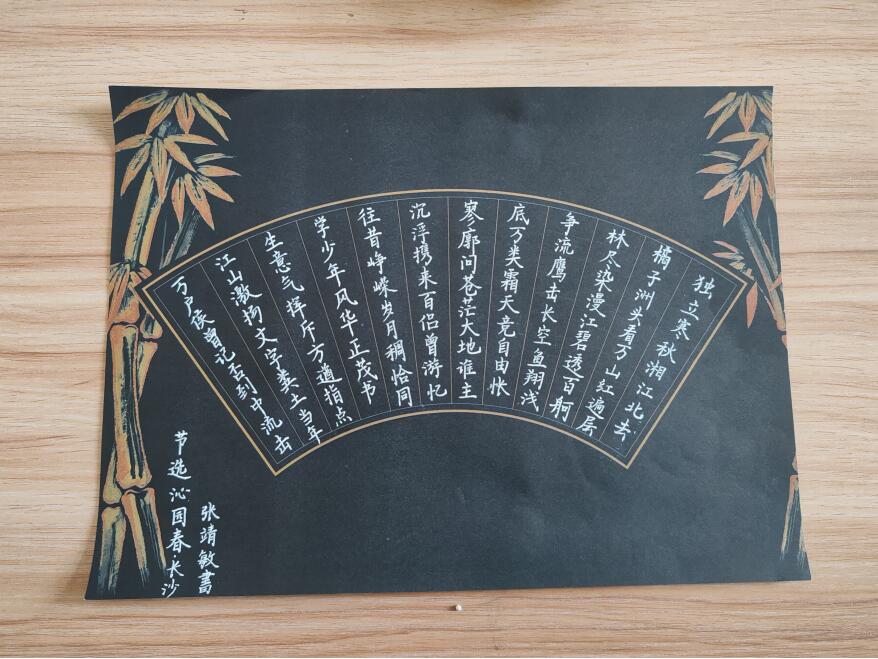 独立寒秋湘江北去
橘子洲头看万山红遍层
林尽染漫江碧透百舸
争流鹰击长空鱼翔浅
底万类霜天竞自由怅
寥廓问苍茫大地谁主
沉浮携来百侣曾游忆
往昔峥嵘岁月稠恰同
学少年风华正茂书
生意气挥斥方遒指点
江山激扬文字粪土当年
万户侯曾记否到中流击
节选沁园春·长沙
张靖敏書